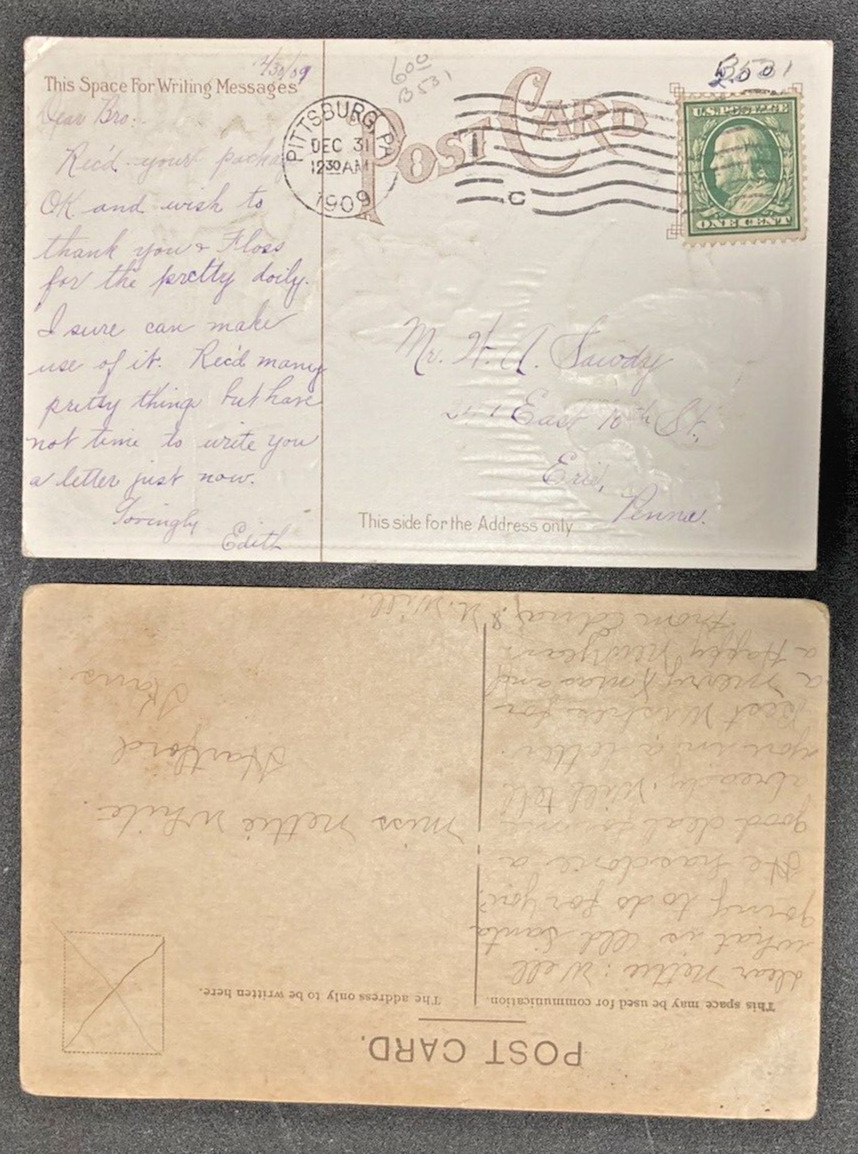 This Space For Writing Messages
12/30/09
Dear Bro:-
Rec'd your package
OK and wish to
thank you & Floss
for the pretty doily.
I sure can make
use of it. Rec'd many
pretty things but have
not time to write you
a letter just now.
Lovingly
Edith
600
B531
B531
200
PITTSBURG, PA
DEC 31
12 30 AM
1909
POST CARD
C
U.S. POSTAGE
ONE CENT
Mr. H. A. Sawdy
East 10th St.
Erie,
Penna.
This side for the Address only
POST CARD.
This space may be used for communication.
The address only to be written here.
Dear Nettie: Well
what is old Santa
going to do for you?
He has done a
good deal for me
already. Will tell
you in a letter.
Best Wishes for
a Merry Xmas and
a Happy New Year
from Edna & U. Will.
Miss Nettie White.
Hartford
Kans